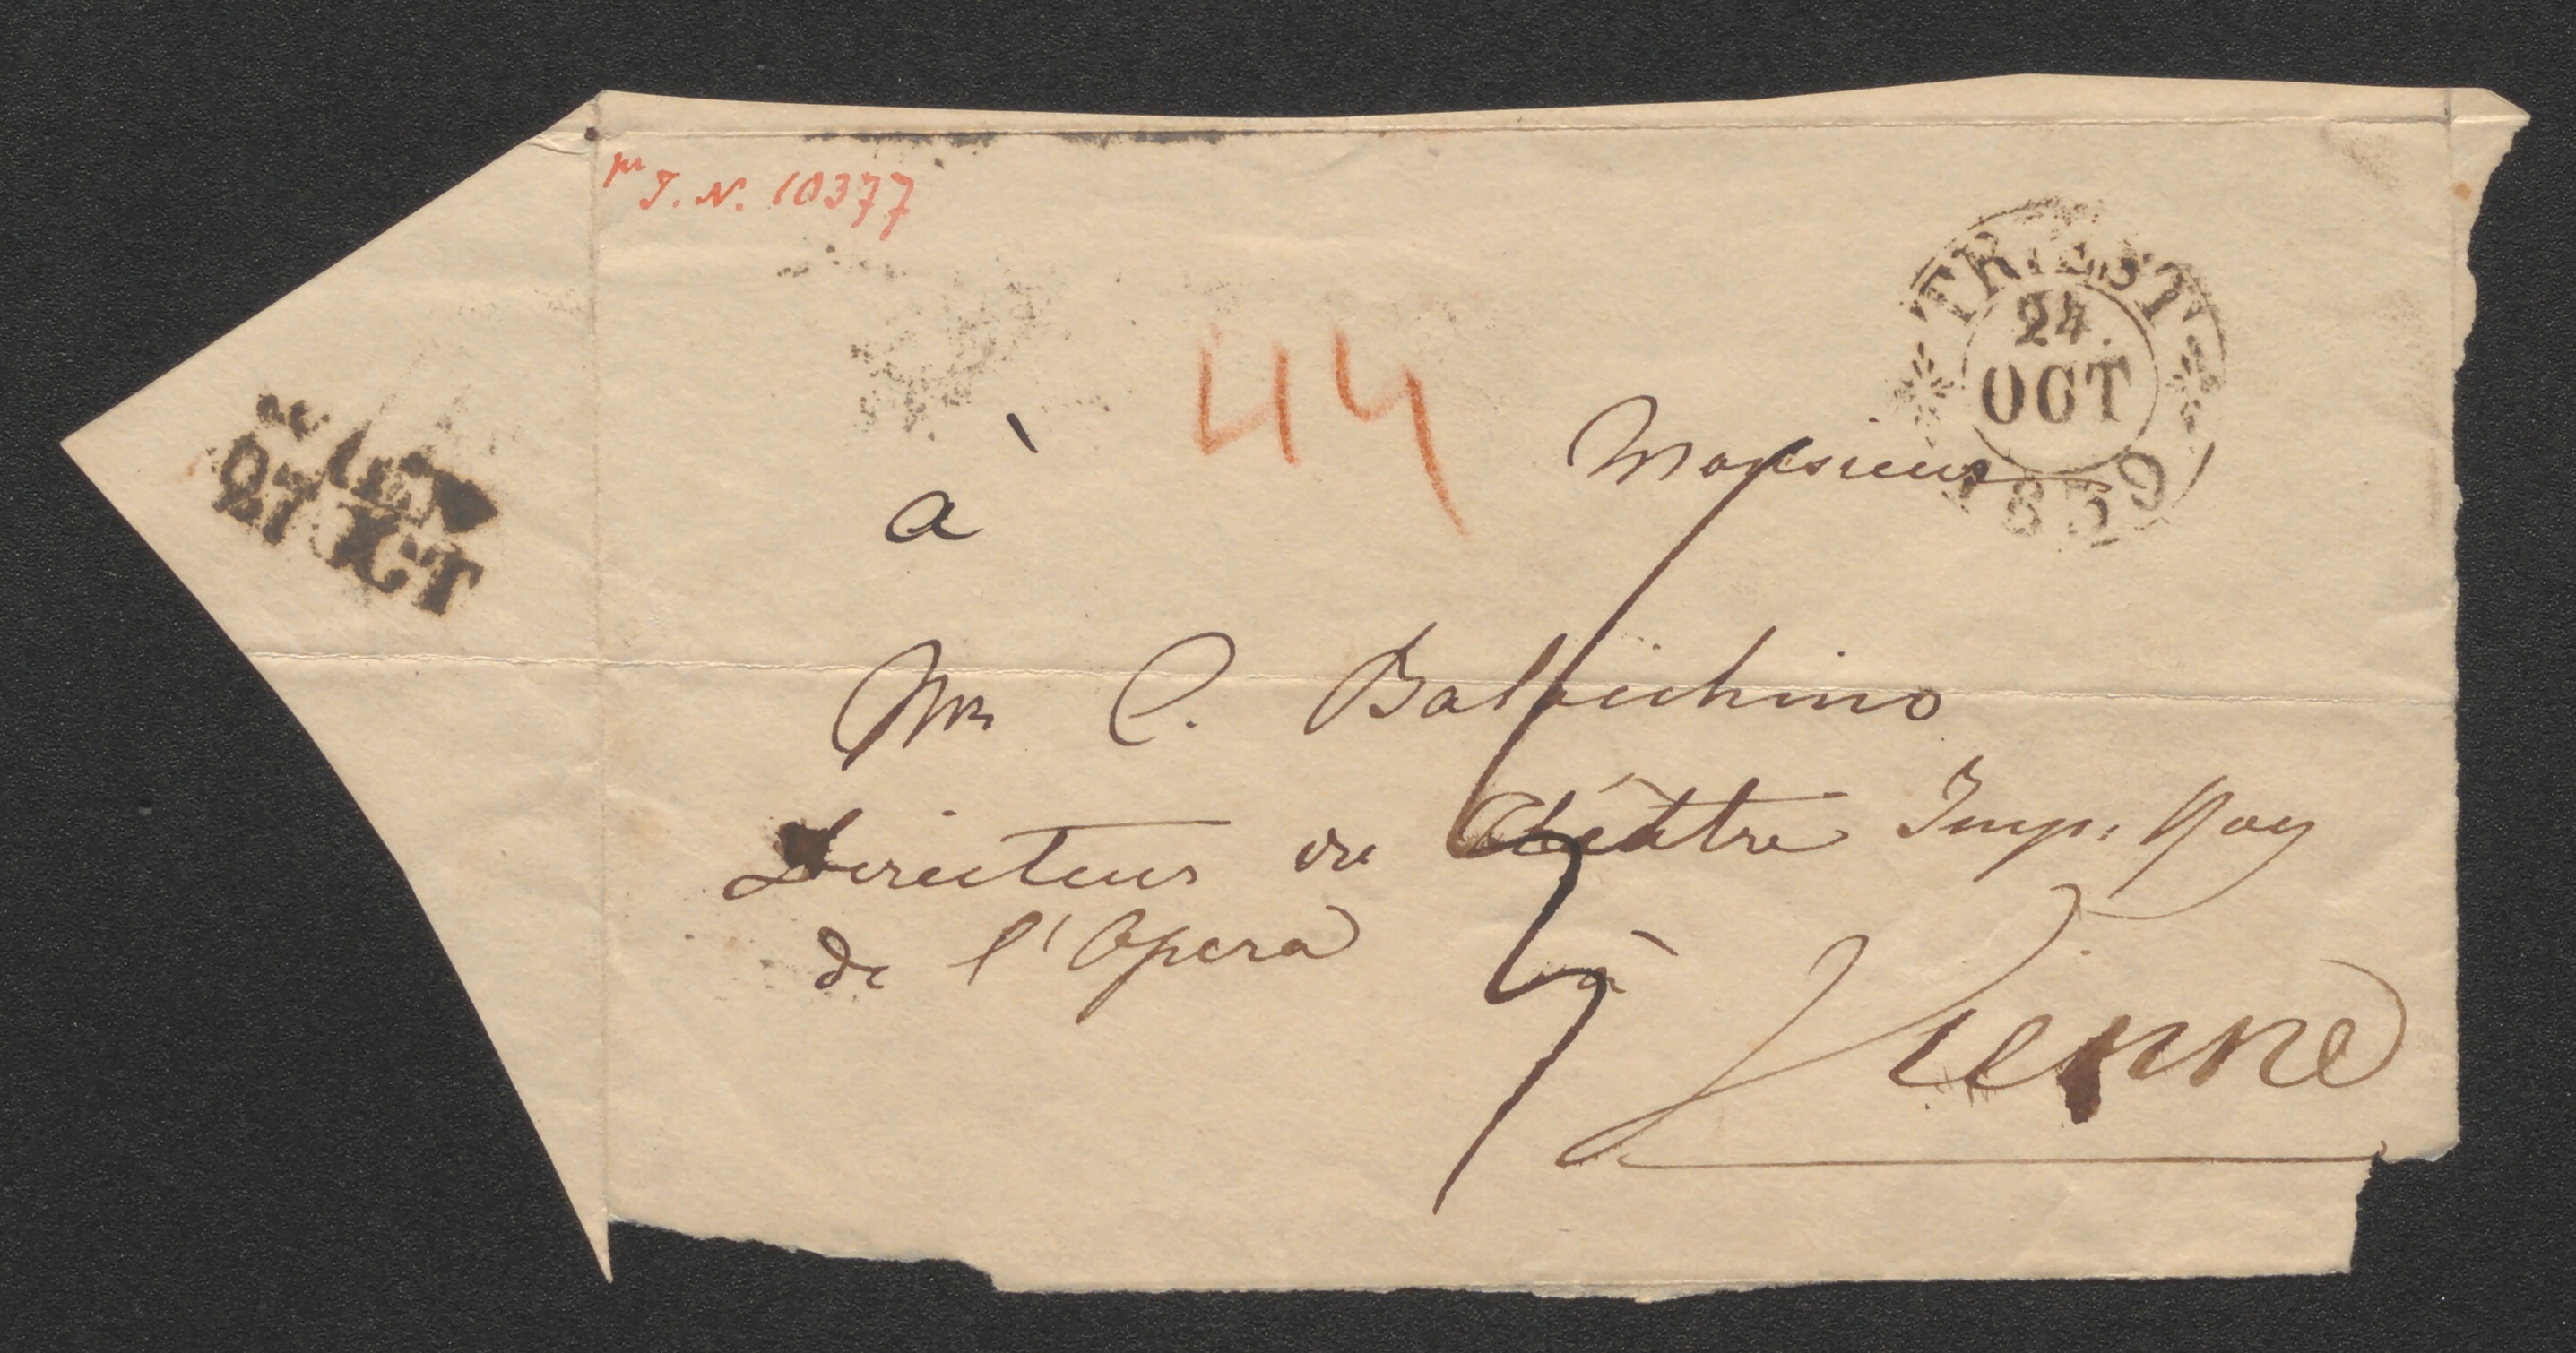 J. N. 10377
TRIEST
24.
OCT
1839
44
à
Monsieur
Mr C. Ballochino
Directeur du Théâtre Imp. Roy
de l'Opera
à
Vienne
WIEN
27 OCT